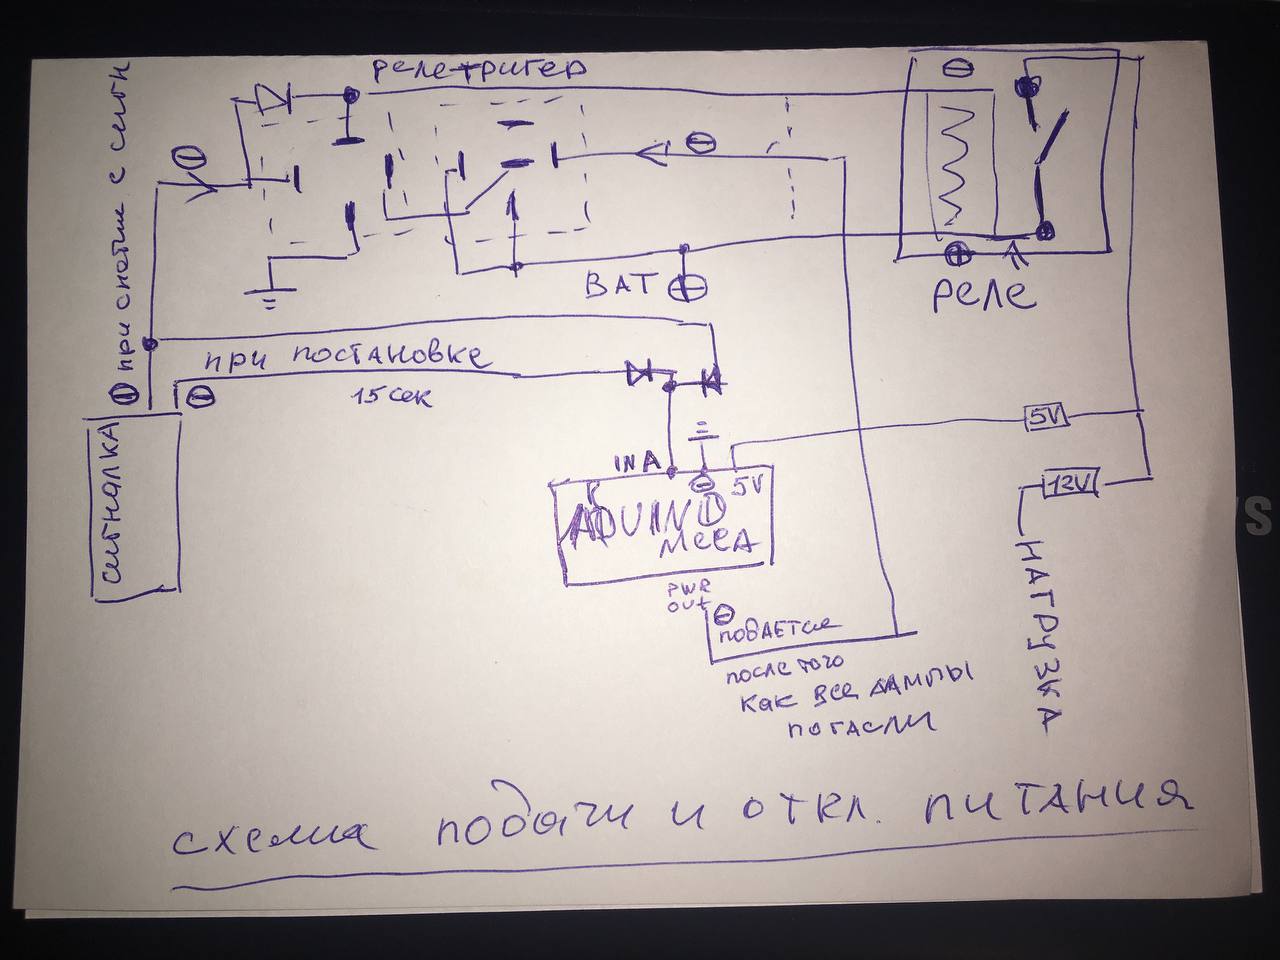 реле-тригер
при снятии с сигн
ВАТ
реле
при постановке
15 сек
СИГНАЛКА
INA
5V
ARDUINO
МЕГА
PWR
OUT
подается
после того
как все лампы
погасли
5V
12V
НАГРУЗКА
схема подачи и откл. питания